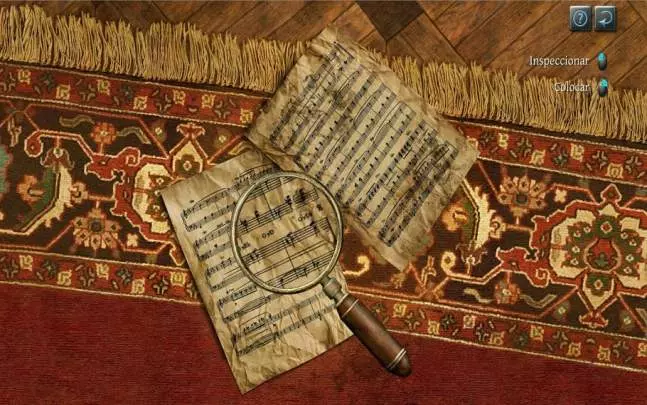 ?
Inspeccionar
Colocar